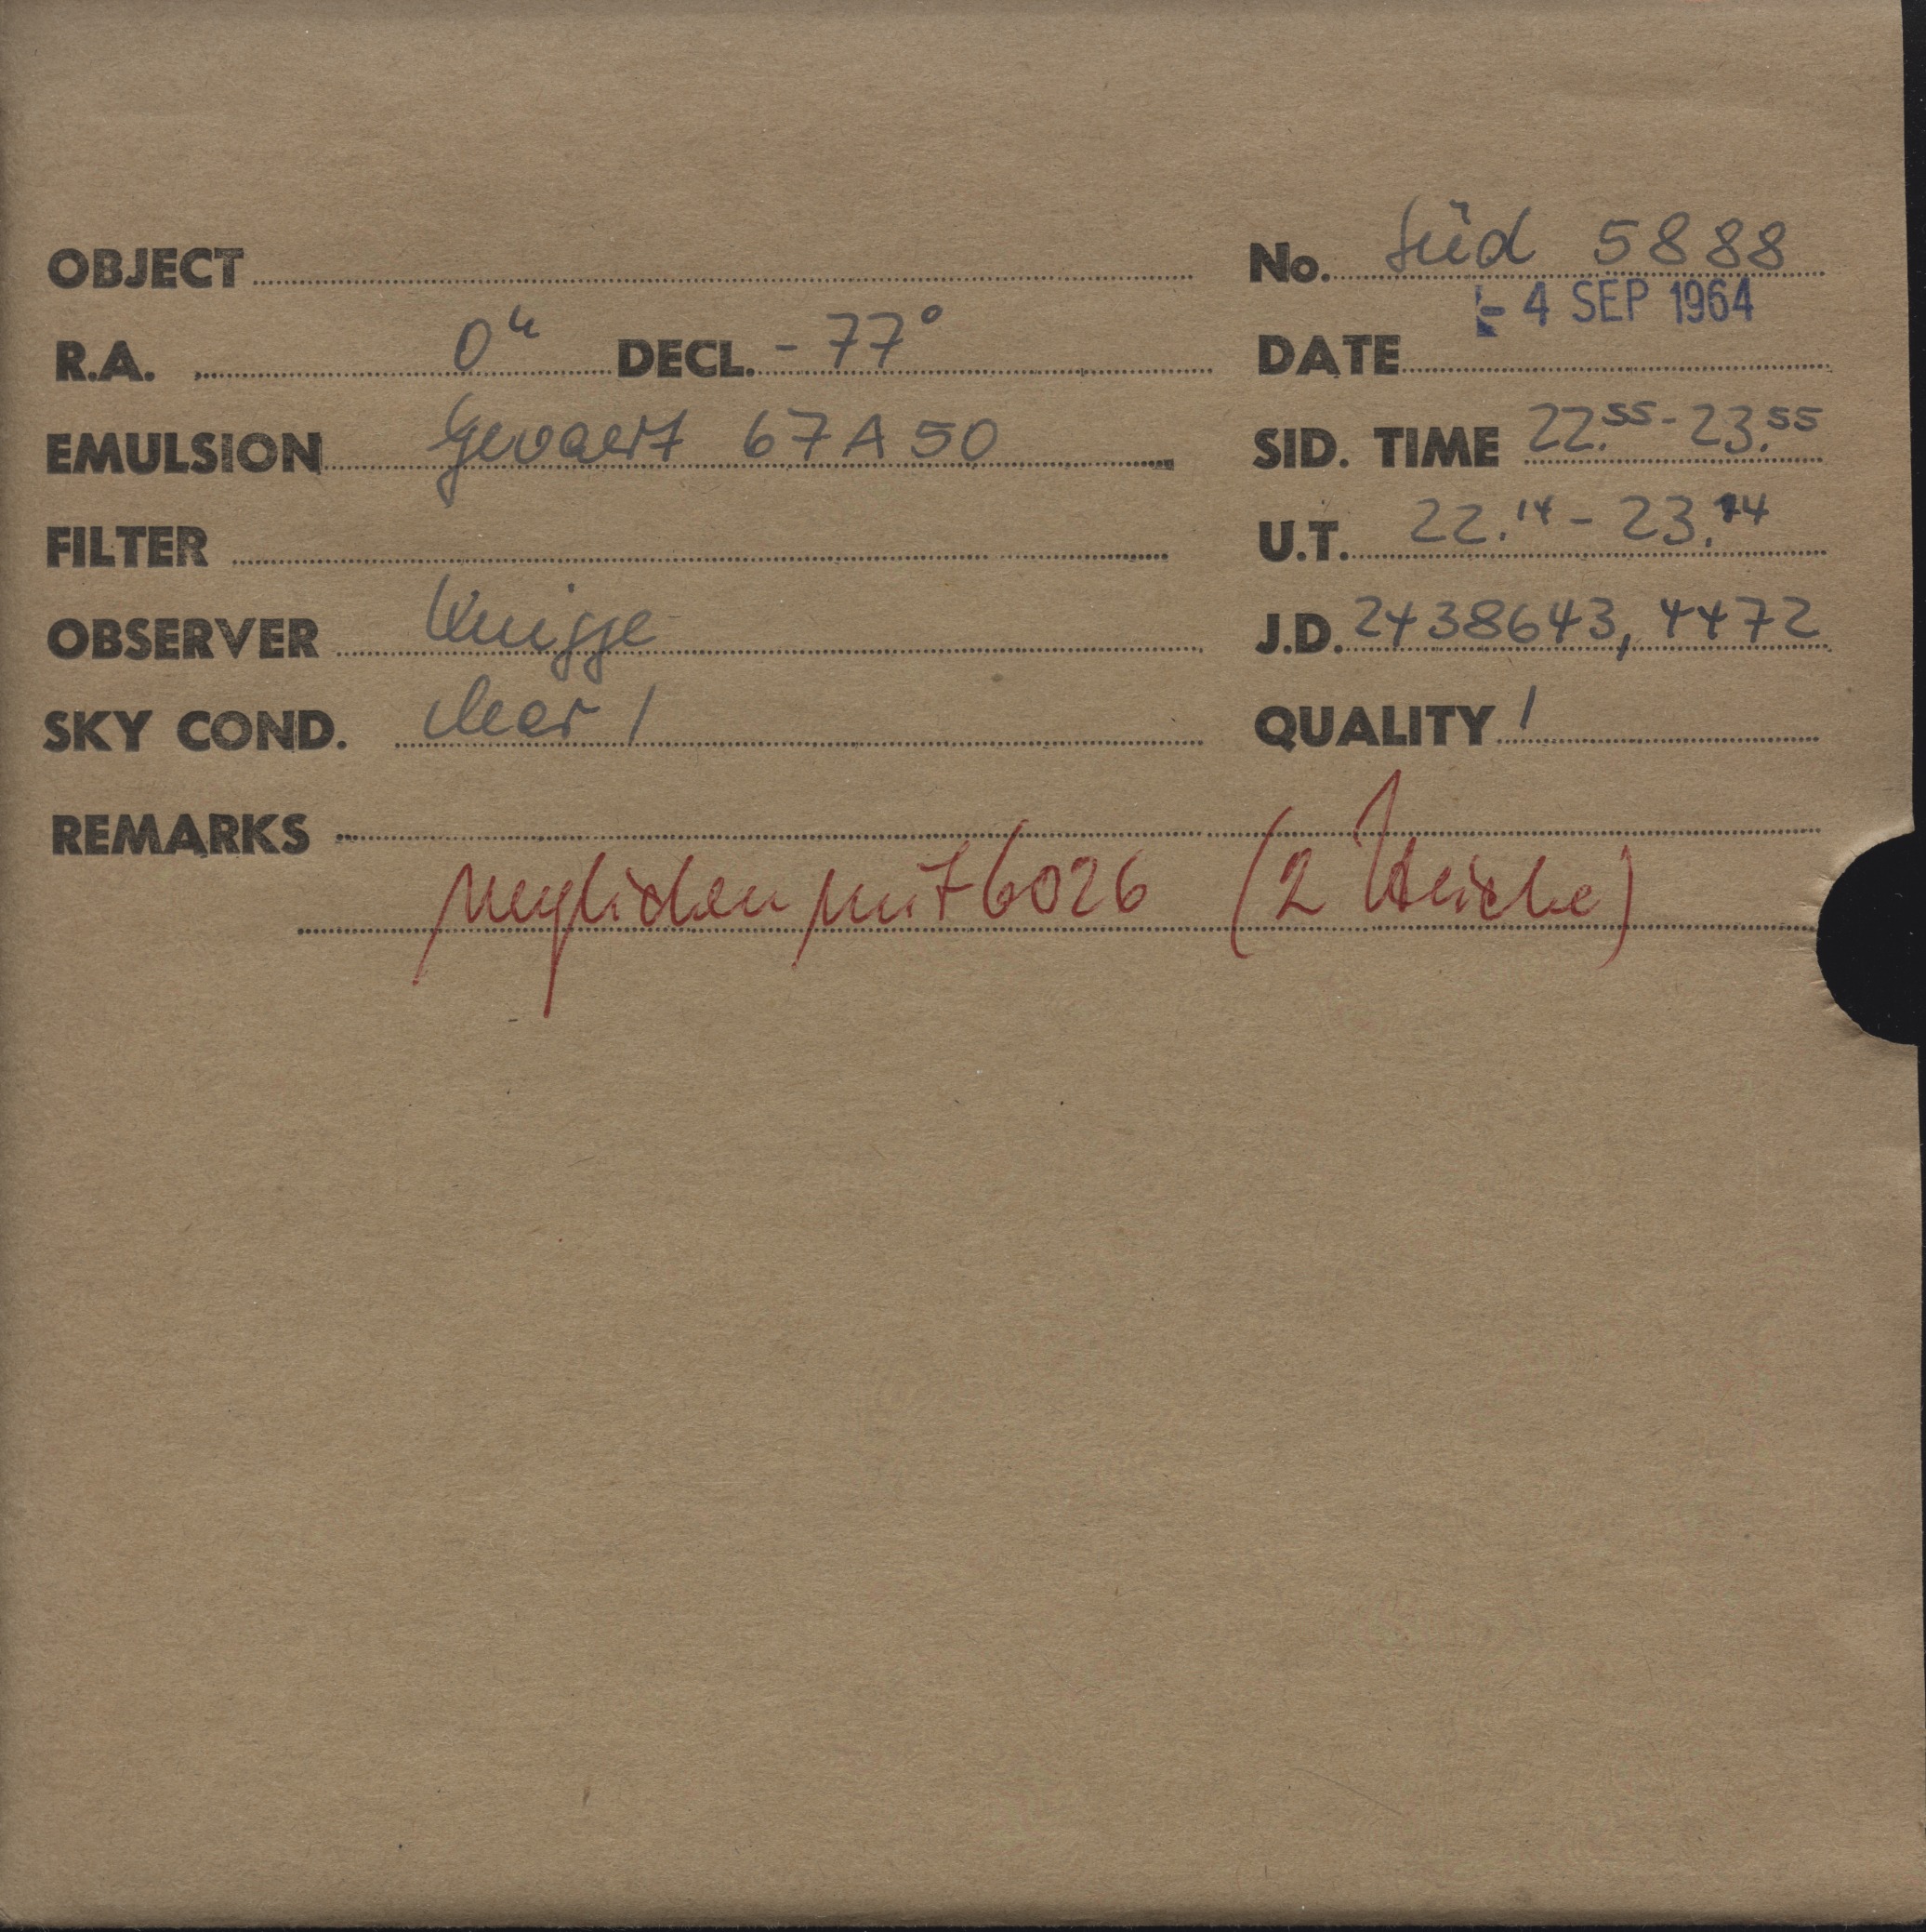 OBJECT No. Süd 5888
- 4 SEP 1964
R.A. 0h DECL. - 77° DATE
EMULSION Gevaert 67A50 SID. TIME 22.55 - 23.55
FILTER U.T. 22.14 - 23.14
OBSERVER Knigge J.D. 2438643,4472
SKY COND. clear 1 QUALITY 1
REMARKS
verglichen mit 6026 (2 Striche)